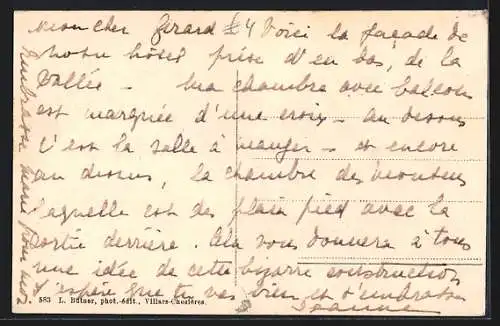 Mon cher Gérard £4 Voici la façade de
notre hôtel prise d'en bas, de la
vallée - Ma chambre avec balcon
est marquée d'une croix - au dessous
c'est la salle à manger - et encore
au dessous, la chambre des
laquelle est de plain pied avec la
sortie derrière. Cela vous donnera à tous
une idée de cette bizarre construction
J'espère que tu vas bien et t'embrasse
Jeanne
Embrasse Mamie pour moi
583 L. Bütner, phot.-édit., Villars-Chesières.